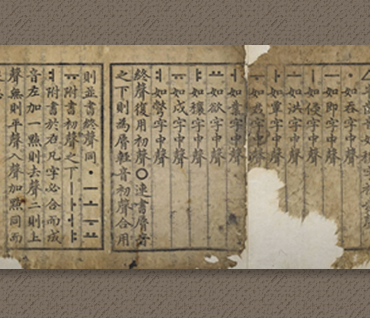 △半齒音如穰字初聲
ㆍ如呑字中聲
ㅡ如即字中聲
ㅣ如侵字中聲
ㅗ如洪字中聲
ㅏ如覃字中聲
如君字中聲
ㅓ如業字中聲
ㅛ如欲字中聲
ㅑ如穰字中聲
ㅠ如戌字中聲
ㅕ如彆字中聲
終聲復用初聲○連書脣音
之下則為脣輕音初聲合用
則並書終聲同ㆍㅡㅗㅜㅛ
ㅠ附書初聲之下ㅣㅏㅓㅑ
ㅕ附書於右凡字必合而成
音左加一點則去聲二則上
聲無則平聲入聲加點同而